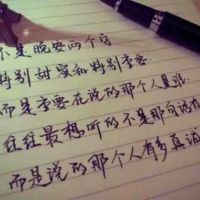 不是晚安两个字
特别甜蜜和特别重要
而是重要在说的那个人是谁
往往最想听的不是那句话有
而是说的那个人有多真诚